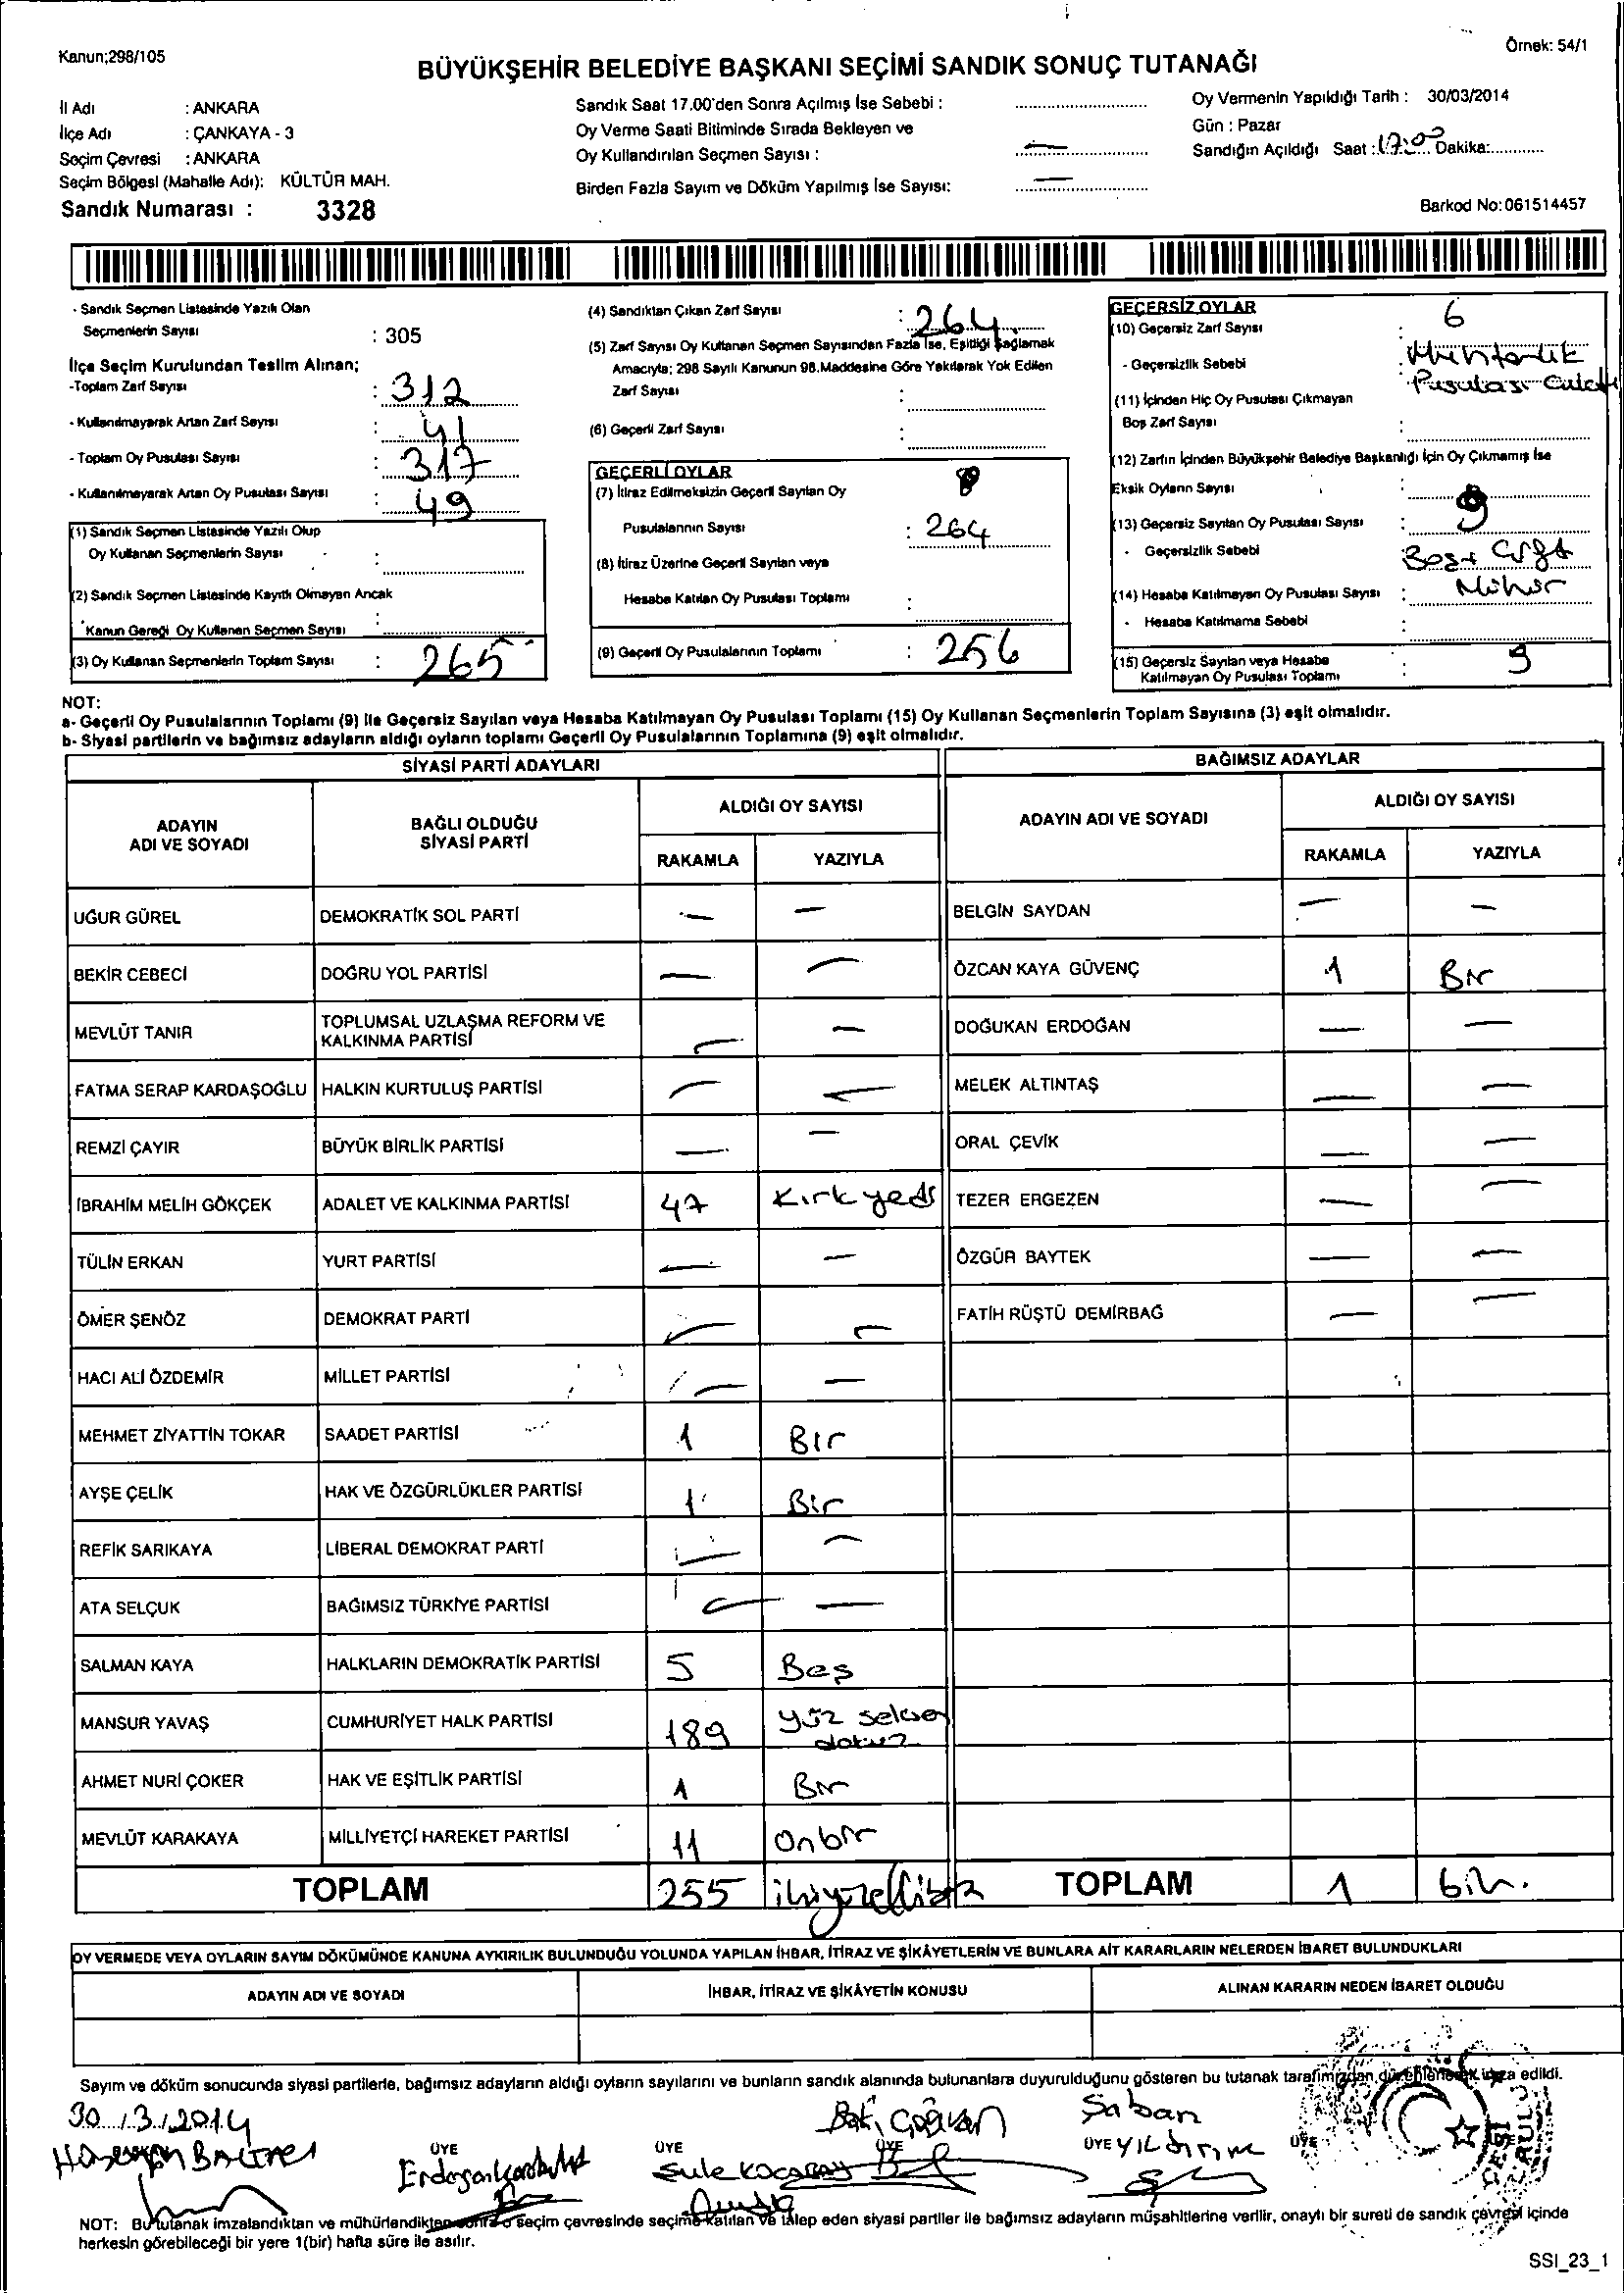 Kanun;298/105
Örnek: 54/1
BÜYÜKŞEHİR BELEDİYE BAŞKANI SEÇİMİ SANDIK SONUÇ TUTANAĞI
İl Adı : ANKARA
İlçe Adı : ÇANKAYA - 3
Seçim Çevresi : ANKARA
Seçim Bölgesi (Mahalle Adı): KÜLTÜR MAH.
Sandık Numarası : 3328
Sandık Saat 17.00'den Sonra Açılmış İse Sebebi :
Oy Verme Saati Bitiminde Sırada Bekleyen ve
Oy Kullandırılan Seçmen Sayısı : —
Birden Fazla Sayım ve Döküm Yapılmış İse Sayısı: —
Oy Vermenin Yapıldığı Tarih : 30/03/2014
Gün : Pazar
Sandığın Açıldığı Saat : 17:00 Dakika:
Barkod No:061514457
- Sandık Seçmen Listesinde Yazılı Olan
Seçmenlerin Sayısı : 305
İlçe Seçim Kurulundan Teslim Alınan;
-Toplam Zarf Sayısı : 312
- Kullanılmayarak Artan Zarf Sayısı : 41
- Toplam Oy Pusulası Sayısı : 317
- Kullanılmayarak Artan Oy Pusulası Sayısı : 49
(1) Sandık Seçmen Listesinde Yazılı Olup
Oy Kullanan Seçmenlerin Sayısı :
(2) Sandık Seçmen Listesinde Kayıtlı Olmayan Ancak
Kanun Gereği Oy Kullanan Seçmen Sayısı :
(3) Oy Kullanan Seçmenlerin Toplam Sayısı : 265
(4) Sandıktan Çıkan Zarf Sayısı : 264
(5) Zarf Sayısı Oy Kullanan Seçmen Sayısından Fazla İse, Eşitliği Sağlamak
Amacıyla; 298 Sayılı Kanunun 98.Maddesine Göre Yakılarak Yok Edilen
Zarf Sayısı :
(6) Geçerli Zarf Sayısı :
GEÇERLİ OYLAR
(7) İtiraz Edilmeksizin Geçerli Sayılan Oy
Pusulalarının Sayısı : 264
(8) İtiraz Üzerine Geçerli Sayılan veya
Hesaba Katılan Oy Pusulası Toplamı :
(9) Geçerli Oy Pusulalarının Toplamı : 256
GEÇERSİZ OYLAR
(10) Geçersiz Zarf Sayısı : 6
- Geçersizlik Sebebi : Muhtarlık
Pusulası
(11) İçinden Hiç Oy Pusulası Çıkmayan
Boş Zarf Sayısı :
(12) Zarfın İçinden Büyükşehir Belediye Başkanlığı İçin Oy Çıkmamış İse
Eksik Oyların Sayısı :
(13) Geçersiz Sayılan Oy Pusulası Sayısı : 9
- Geçersizlik Sebebi Boş + Çift
Mühür
(14) Hesaba Katılmayan Oy Pusulası Sayısı :
- Hesaba Katılmama Sebebi :
(15) Geçersiz Sayılan veya Hesaba
Katılmayan Oy Pusulası Toplamı : 9
NOT:
a- Geçerli Oy Pusulalarının Toplamı (9) ile Geçersiz Sayılan veya Hesaba Katılmayan Oy Pusulası Toplamı (15) Oy Kullanan Seçmenlerin Toplam Sayısına (3) eşit olmalıdır.
b- Siyasi partilerin ve bağımsız adayların aldığı oyların toplamı Geçerli Oy Pusulalarının Toplamına (9) eşit olmalıdır.
SİYASİ PARTİ ADAYLARI
ADAYIN ADI VE SOYADI
BAĞLI OLDUĞU SİYASİ PARTİ
ALDIĞI OY SAYISI
RAKAMLA YAZIYLA
UĞUR GÜREL DEMOKRATİK SOL PARTİ — —
BEKİR CEBECİ DOĞRU YOL PARTİSİ — —
MEVLÜT TANIR TOPLUMSAL UZLAŞMA REFORM VE KALKINMA PARTİSİ — —
FATMA SERAP KARDAŞOĞLU HALKIN KURTULUŞ PARTİSİ — —
REMZİ ÇAYIR BÜYÜK BİRLİK PARTİSİ — —
İBRAHİM MELİH GÖKÇEK ADALET VE KALKINMA PARTİSİ 47 Kırkyedi
TÜLİN ERKAN YURT PARTİSİ — —
ÖMER ŞENÖZ DEMOKRAT PARTİ — —
HACI ALİ ÖZDEMİR MİLLET PARTİSİ — —
MEHMET ZİYATTİN TOKAR SAADET PARTİSİ 1 Bir
AYŞE ÇELİK HAK VE ÖZGÜRLÜKLER PARTİSİ 1 Bir
REFİK SARIKAYA LİBERAL DEMOKRAT PARTİ — —
ATA SELÇUK BAĞIMSIZ TÜRKİYE PARTİSİ — —
SALMAN KAYA HALKLARIN DEMOKRATİK PARTİSİ 5 Beş
MANSUR YAVAŞ CUMHURİYET HALK PARTİSİ 189 yüz seksen dokuz
AHMET NURİ ÇOKER HAK VE EŞİTLİK PARTİSİ 1 Bir
MEVLÜT KARAKAYA MİLLİYETÇİ HAREKET PARTİSİ 11 Onbir
TOPLAM 255 ikiyüzellibeş
BAĞIMSIZ ADAYLAR
ADAYIN ADI VE SOYADI
ALDIĞI OY SAYISI
RAKAMLA YAZIYLA
BELGİN SAYDAN — —
ÖZCAN KAYA GÜVENÇ 1 Bir
DOĞUKAN ERDOĞAN — —
MELEK ALTINTAŞ — —
ORAL ÇEVİK — —
TEZER ERGEZEN — —
ÖZGÜR BAYTEK — —
FATİH RÜŞTÜ DEMİRBAĞ — —
TOPLAM 1 bir.
OY VERMEDE VEYA OYLARIN SAYIM DÖKÜMÜNDE KANUNA AYKIRILIK BULUNDUĞU YOLUNDA YAPILAN İHBAR, İTİRAZ VE ŞİKÂYETLERİN VE BUNLARA AİT KARARLARIN NELERDEN İBARET BULUNDUKLARI
ADAYIN ADI VE SOYADI
İHBAR, İTİRAZ VE ŞİKÂYETİN KONUSU
ALINAN KARARIN NEDEN İBARET OLDUĞU
Sayım ve döküm sonucunda siyasi partilerle, bağımsız adayların aldığı oyların sayılarını ve bunların sandık alanında bulunanlara duyurulduğunu gösteren bu tutanak tarafımızdan düzenlenerek imza edildi.
30/3/2014
BAŞKAN
ÜYE
Erdoğan
ÜYE
Şule Kocabay
Baki
ÜYE
Şaban
ÜYE Yıldırım
ÜYE
NOT: Bu tutanak imzalandıktan ve mühürlendikten sonra o seçim çevresinde seçime katılan ve talep eden siyasi partiler ile bağımsız adayların müşahitlerine verilir, onaylı bir sureti de sandık çevresi içinde
herkesin görebileceği bir yere 1(bir) hafta süre ile asılır.
SSI_23_1